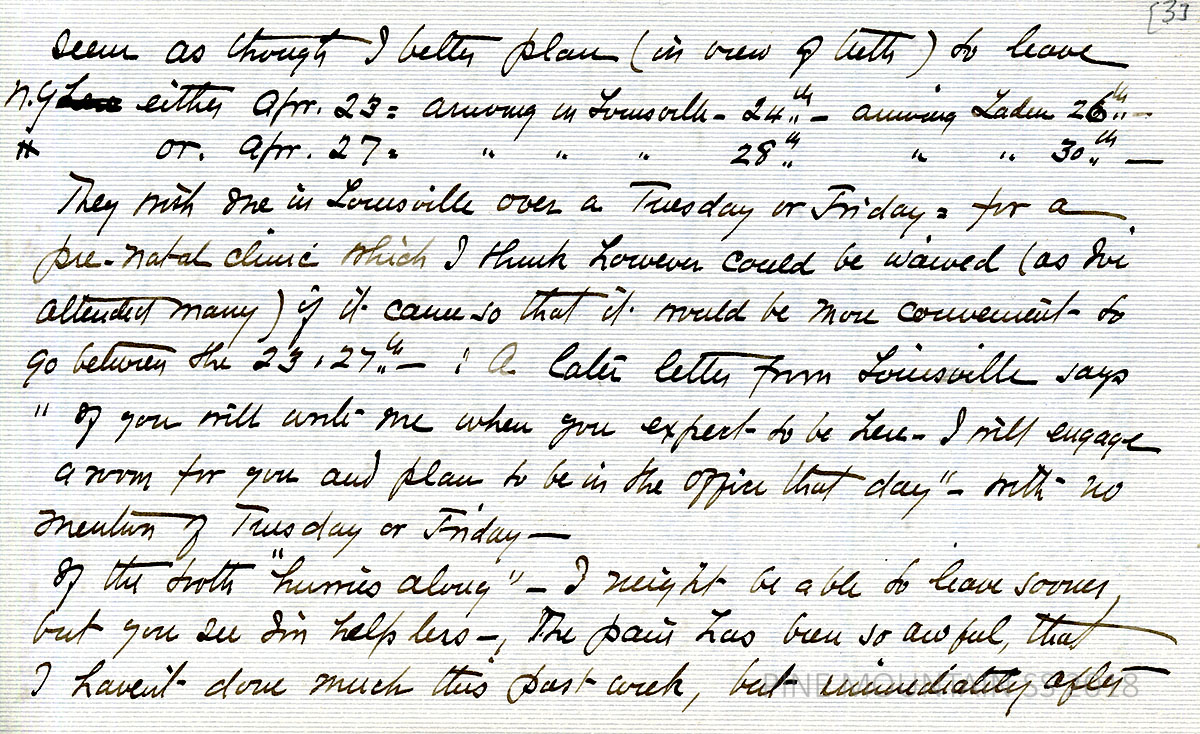 [3]
seem as though I better plan (in view of teeth) to leave
N.Y. either Apr. 23 = arriving in Louisville - 24th - arriving Laden 26th -
or. Apr. 27 = " " " 28th " " 30th -
They wish me in Louisville over a Tuesday or Friday = for a
pre-natal clinic which I think however could be waived (as I've
attended many) if it came so that it would be more convenient to
go between the 23 + 27th - : A later letter from Louisville says
"If you will write me when you expect to be here - I will engage
a room for you and plan to be in the office that day" - with no
mention of Tuesday or Friday -
If the tooth "hurries along" - I might be able to leave sooner,
but you see I'm helpless -, The pain has been so awful, that
I haven't done much this past week, but immediately after
PINE MOUNTAIN SS 2018